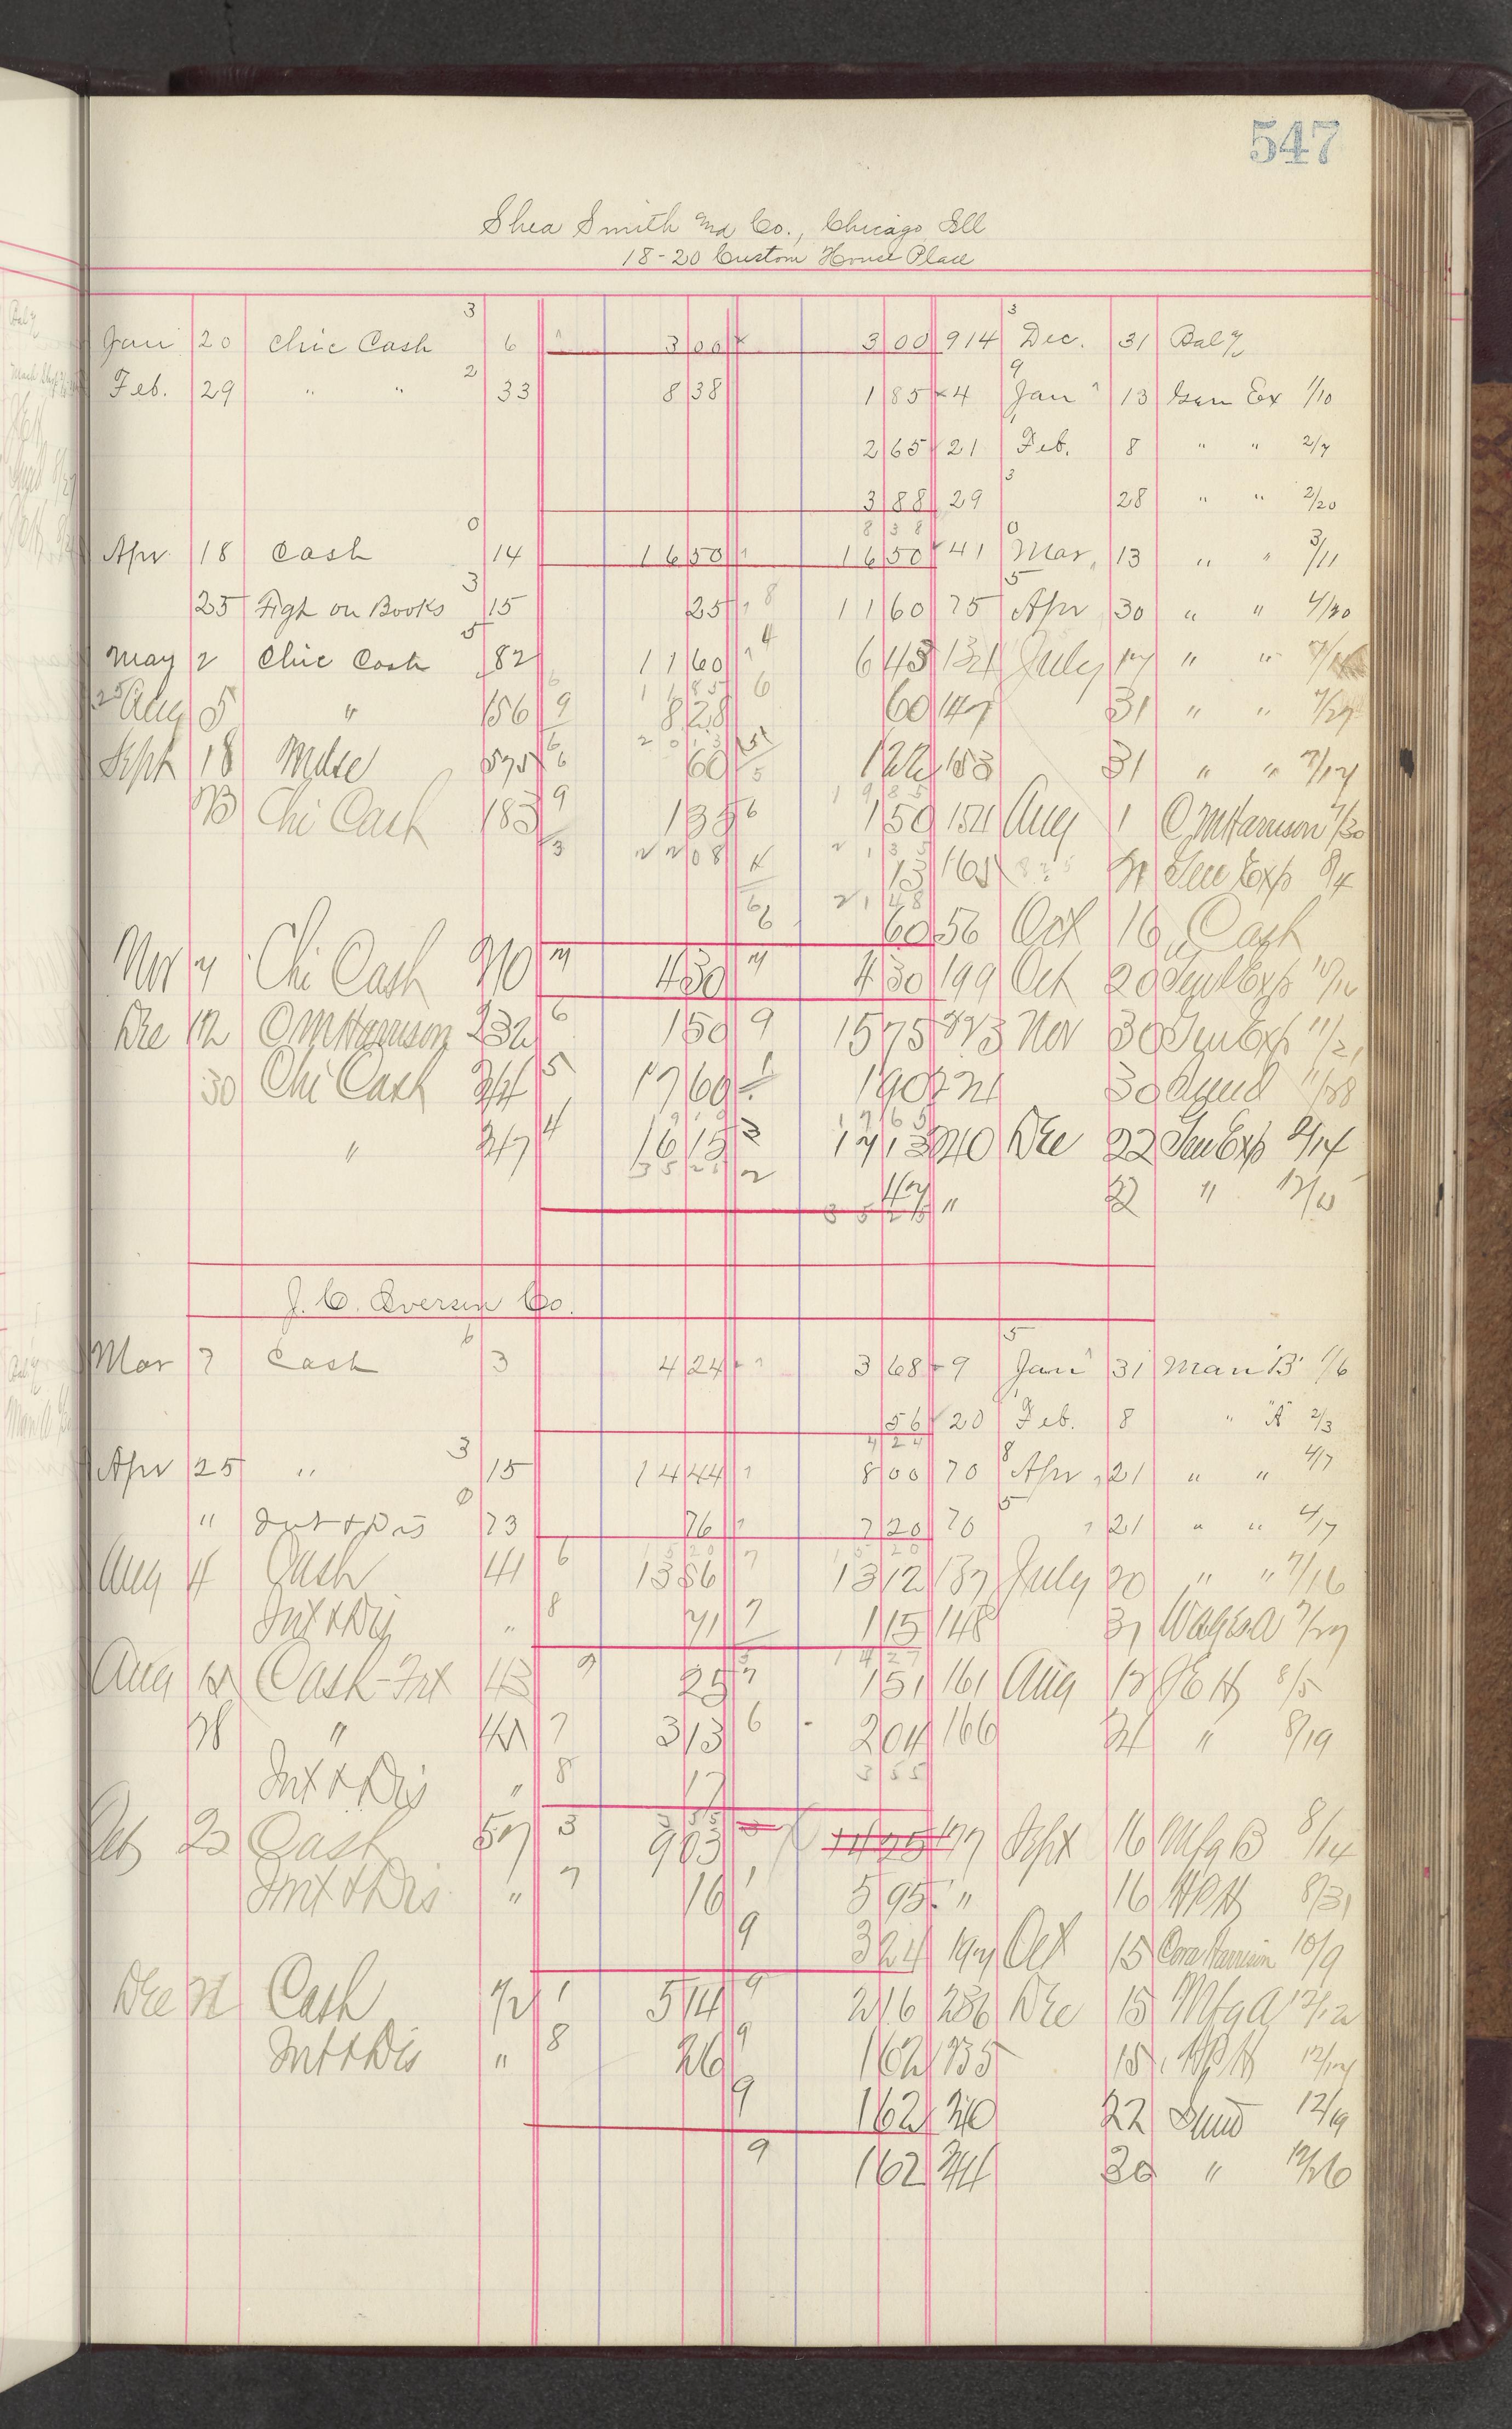 547
Shea Smith and Co., Chicago Ill
18-20 Custom House Place
Jan 20 Chic Cash 3 6 3 00 3 00 914 3 Dec. 31 Bal
Feb. 29 " " 2 33 8 38 1 85 4 9 Jan 13 Gen Ex 1/10
2 65 21 1 Feb. 8 " " 2/7
3 88 29 3 28 " " 2/20
8 3 8
Apr 18 Cash 0 14 16 50 16 50 41 0 Mar, 13 " " 3/11
25 Figh on Books 3 15 25 8 11 60 75 5 Apr 30 " " 4/30
May 2 Chic Cash 5 82 11 60 4 6 43 131 July 17 " "
11 85 6
Aug 5 " 156 9 8 28 60 147 31 " " 7/27
20 13
Sept 18 Mdse 575 6 60 5 1 22 153 31 " "
19 85
23 Chi Cash 183 9 1 35 6 1 50 154 Aug 1 C M Harrison 7/30
3 22 08 21 35
13 165 21 Gen Exp 8/4
21 48
6 60 56 Oct 16 Cash
Nov 7 Chi Cash 210 7 4 30 7 4 30 199 Oct 20 Genl Exp
Dec 12 C M Harrison 232 6 1 50 9 15 75 223 Nov 30 Gen Exp 11/21
30 Chi Cash 244 5 17 60 1 1 90 221 30 11/28
17 65
" 247 4 16 15 3 17 13 240 Dec 22 Gen Exp
35 25 2
47 " 22 "
35 25
J. C. Iversen Co.
Mar 7 Cash 6 3 4 24 3 68 9 5 Jan 31 Man "B" 1/6
56 20 9 Feb. 8 " "A" 2/3
4 24
Apr 25 " 3 15 14 44 8 00 70 8 Apr 21 " " 4/7
" Int & Dis 0 73 76 7 20 70 5 21 " " 4/7
15 20 15 20
Aug 4 Cash 41 6 13 56 7 13 12 137 July 20 " " 7/16
Int & Dis " 8 71 7 1 15 148 31 Wages A 7/27
14 27
Aug 12 Cash-Int 43 9 25 7 1 51 161 Aug 12 J E H 8/5
28 " 45 7 3 13 6 2 04 166 21 " 8/19
Int & Dis " 8 17 3 55
3 55
Oct 23 Cash 57 3 9 03 14 25 177 Sept 16 Mfg B 8/14
Int & Dis " 7 16 1 5 95 " 16 H P H 8/31
9 3 24 197 Oct 15 Cora Harrison 10/9
Dec 21 Cash 72 1 5 14 9 2 16 236 Dec 15 Mfg A 12/12
Int & Dis " 8 26 9 1 62 235 15 H P H
9 1 62 240 22 Sund 12/19
9 1 62 244 30 " 12/26